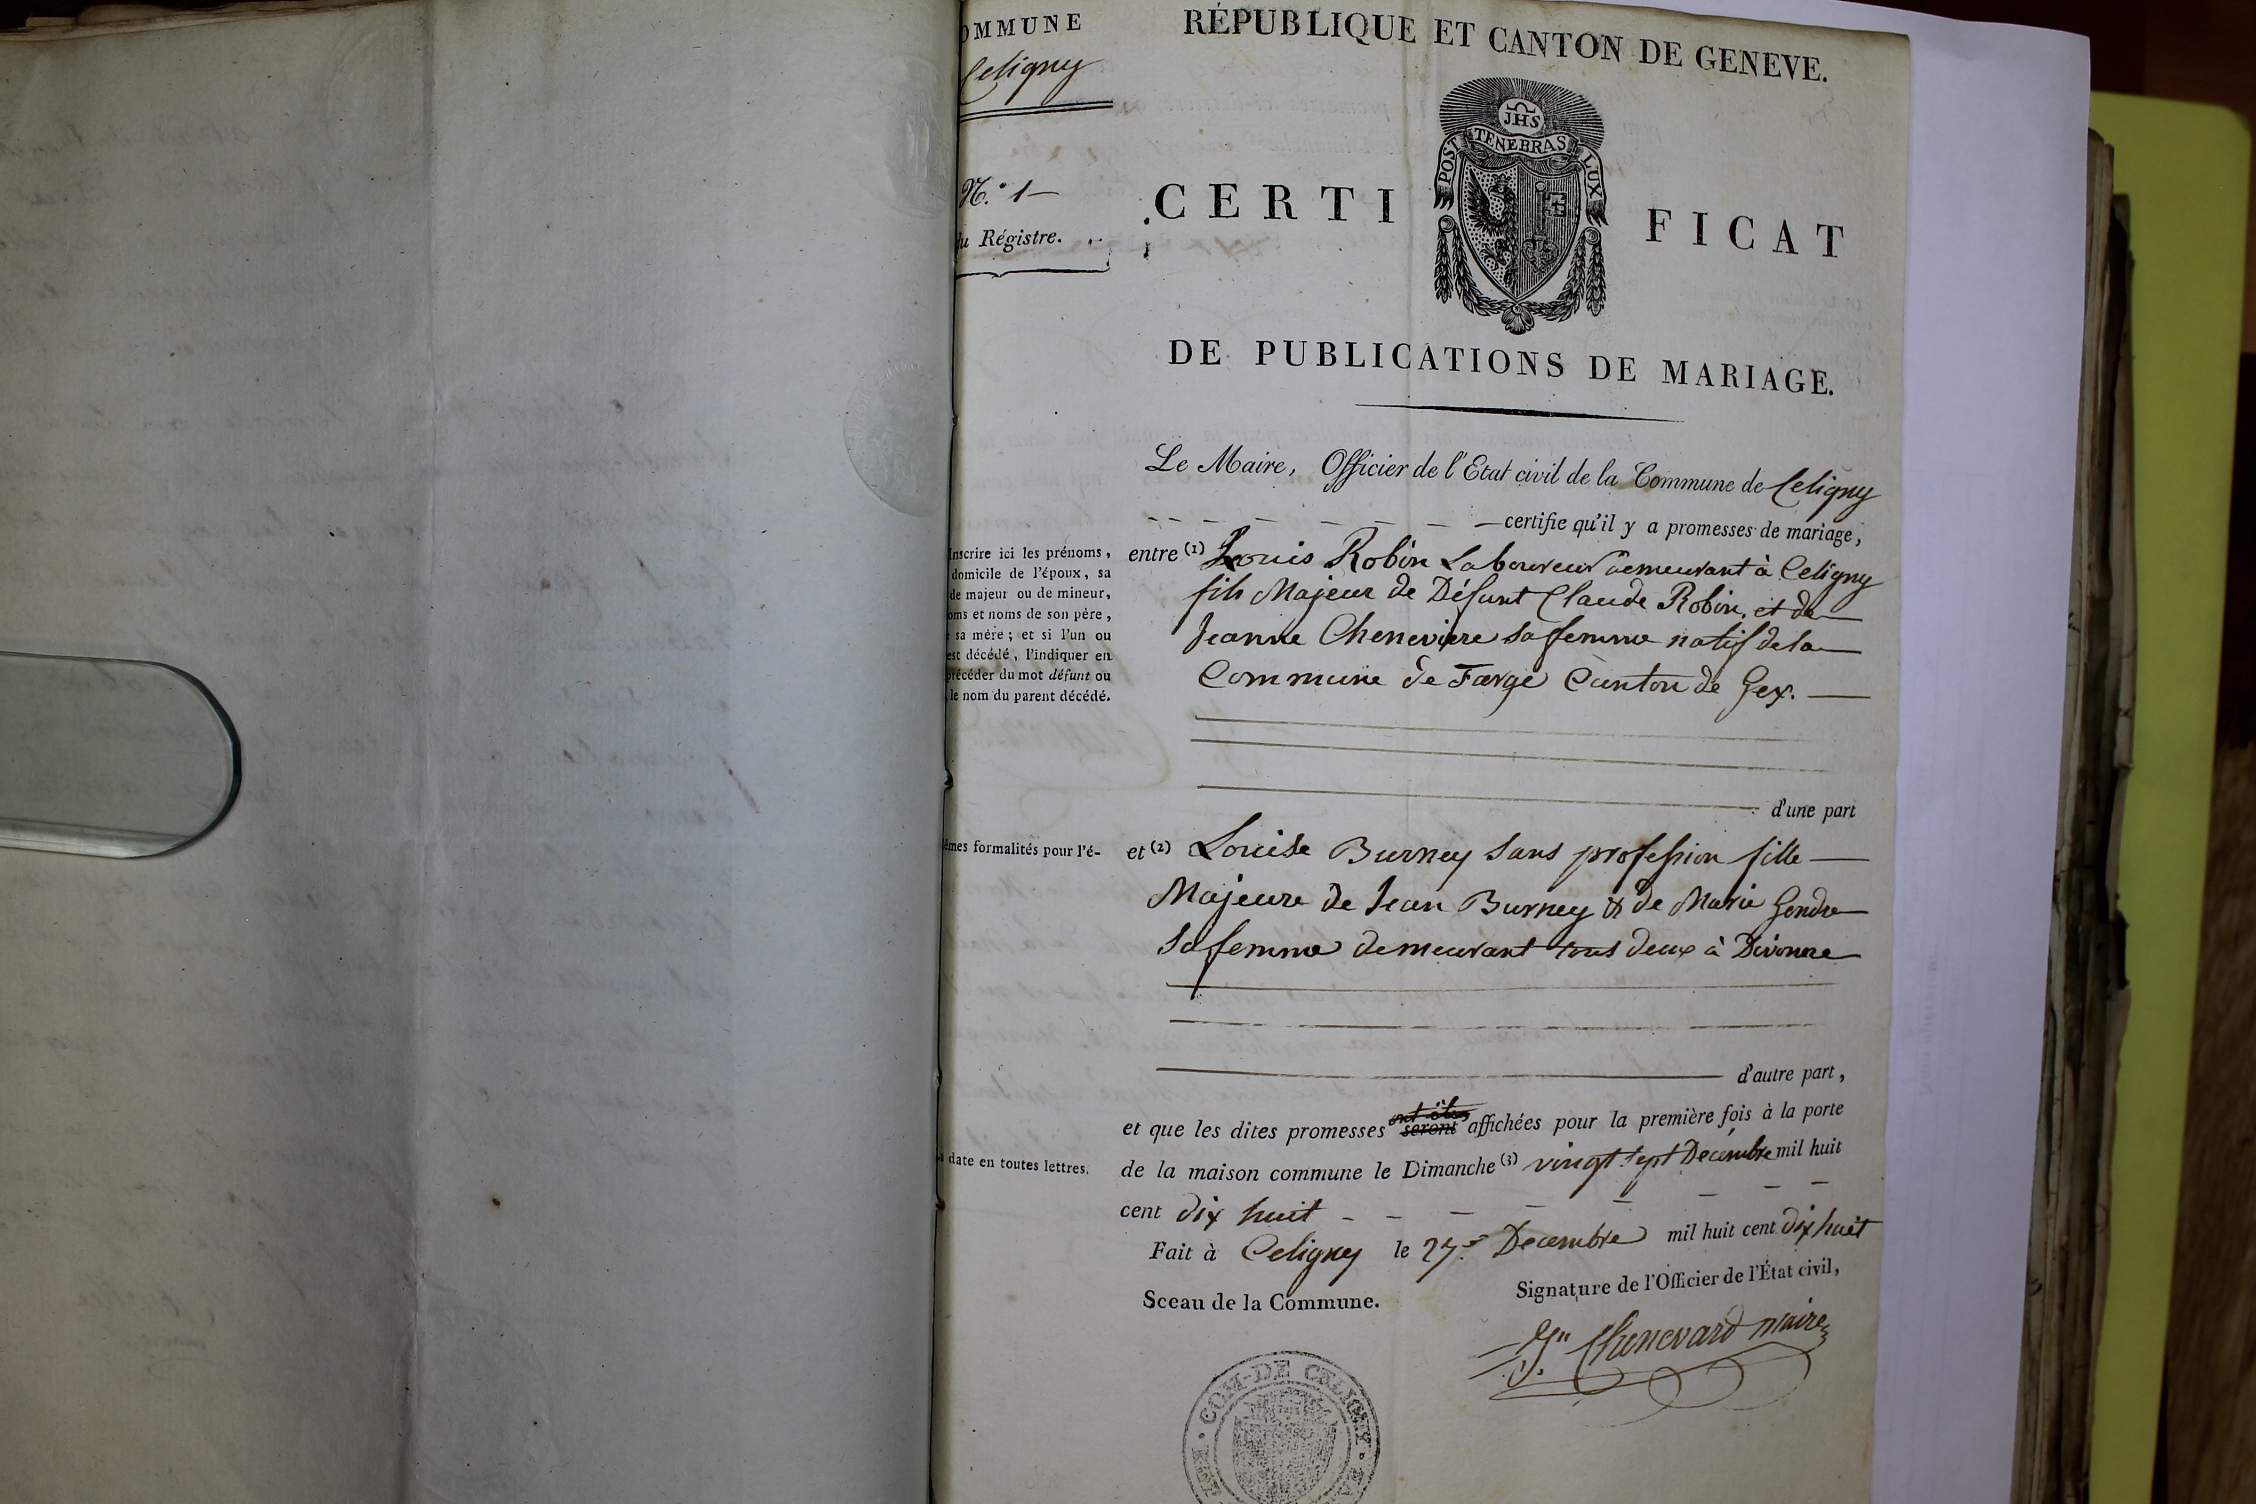 OMMUNE
Celigny
N.º 1
du Régistre.
RÉPUBLIQUE ET CANTON DE GENEVE.
JHS
POST TENEBRAS LUX
CERTIFICAT
DE PUBLICATIONS DE MARIAGE.
Le Maire, Officier de l'Etat civil de la Commune de Celigny
certifie qu'il y a promesses de mariage,
Inscrire ici les prénoms,
domicile de l'époux, sa
de majeur ou de mineur,
oms et noms de son père,
sa mère; et si l'un ou
est décédé, l'indiquer en
précéder du mot défunt ou
le nom du parent décédé.
entre (1) Louis Robin Laboureur demeurant à Celigny
fils Majeur de Défunt Claude Robin, et de
Jeanne Cheneviere sa femme natif de la
Commune de Farge Canton de Gex.
d'une part
êmes formalités pour l'é-
et (2) Louise Burney sans profession fille
Majeure de Jean Burney & de Marie Gendre
sa femme demeurant tous deux à Divonne
d'autre part,
et que les dites promesses ont étés seront affichées pour la première fois à la porte
date en toutes lettres.
de la maison commune le Dimanche (3) vingt sept Décembre mil huit
cent dix huit
Fait à Celigny le 27 Decembre mil huit cent dix huit
Sceau de la Commune.
Signature de l'Officier de l'État civil,
Chenevard maire
COM. DE CELIGNY